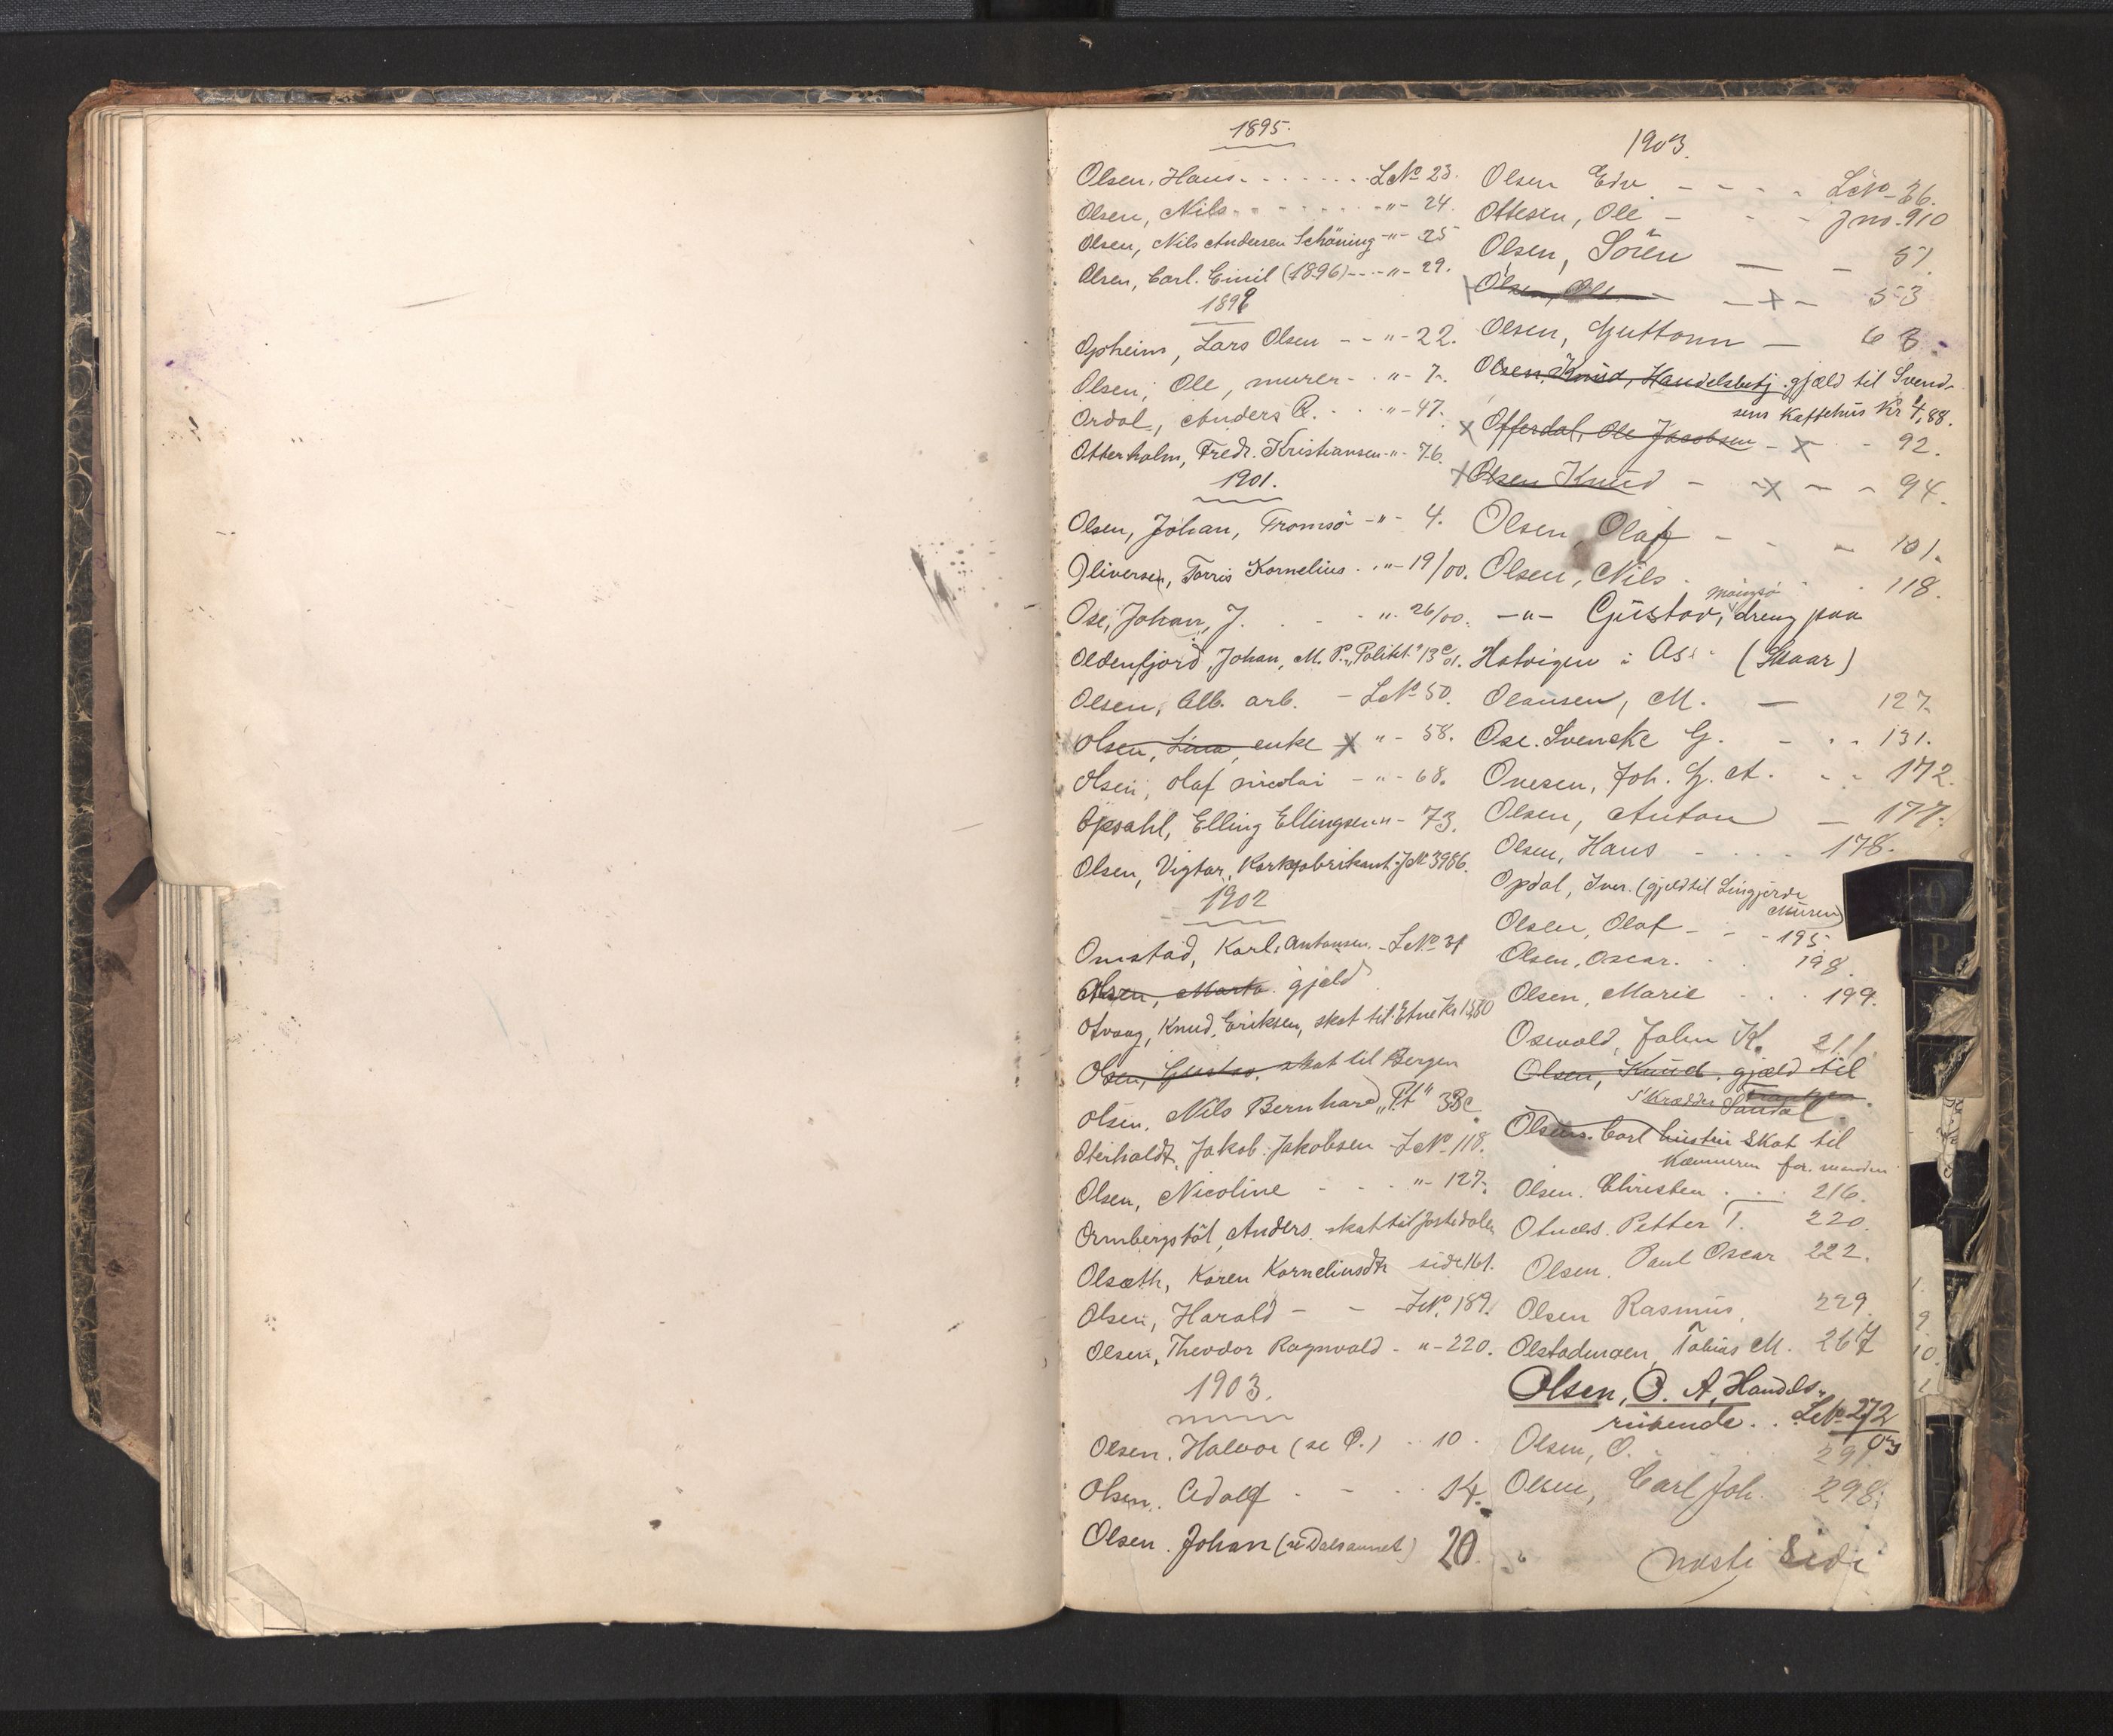 1895.
Olsen, Hans. - - - - - - LNo 23.
Olsen, Nils - - - - - - - " - 24.
Olsen, Nils Andersen Schöning - " - 25
Olsen, Carl. Emil (1896) - - - " - 29.
1899
Opheim, Lars Olsen - - " - 22.
Olsen, Ole, murer - . " - 7.
Ordal, Anders R. - . . " - 47.
Otterholm, Fredr. Kristiansen - " - 76.
1901.
Olsen, Johan, Tromsö - " - 4.
Oliversen, Torris Kornelius . . " - 19/00.
Ose, Johan, J. . . - " . 26/00.
Oldenfjord, Johan, M. P. "Politik" 13 c/01.
Olsen, Alb. arb. - LNo 50.
Olsen, Lina, enke x " - 58.
Olsen, Olaf Nicolai - " - 68.
Opsahl, Elling Ellingsen " - 73.
Olsen, Vigtar, Korkfabrikant JNo 3986.
1902
Omstad, Karl, Antonsen. - LNo 31
Olsen, Marta. gjeld
Otvaag, Knud, Eriksen, skat til Etne Kr 13,80
Olsen, Gustav, skat til Bergen
Olsen, Nils Bernhard "Pt" 38c.
Oterholdt, Jakob Jakobsen - LNo 118.
Olsen, Nicoline - - - " - 127.
Ormbergstöl, Anders. skat til Jostedalen
Olsæth, Karen Kornelinsdtr side 161.
Olsen, Harald - - LNo. 189.
Olsen, Theodor Ragnvald - " - 220.
1903.
Olsen. Halvor (se P.) . . 10 .
Olsen. Adolf . - . . 14.
Olsen . Johan (se Dalsaunet) 20.
1903.
Olsen Edv - - - - LNo - 36.
Ottesen, Ole - - - Jno. 910
Olsen, Sören — - 51.
Olsen, Ole - - x - 53
Olsen, Guttorm — 63.
Olsen, Knud, Handelsbetj. gjæld til Svend-
sens Kaffehus Kr 4,88.
x Offerdal, Ole Jacobsen - x - - 92.
x Olsen Knud - - x - - 94.
Olsen, Olaf - - - 101.
Olsen, Nils . . . 118.
- " - Gustav, dreng paa
Hatvigen i Os. (Skaar)
Olausen, M. — 127.
Ose. Svenske G. - . . 131.
Onesen, Joh. G. A. . . 172.
Olsen, Anton — 177.
Olsen, Hans - . . . 178.
Opdal, Iver. (gjeld til Lingjerde
Muren)
Olsen, Olaf - - - 195.
Olsen, Oscar. . . 198.
Olsen, Marie . . . 199.
Oswald, John K. 211.
Olsen, Knud. gjæld til
Skrædder Sandal.
Olsens. Carl hustru skat til
Kæmneren for manden
Olsen. Christen . . . 216.
Otnæs. Petter T. 220.
Olsen. Paul Oscar 222.
Olsen Rasmus, 229.
Olstadmoen, Tobias M. 267
Olsen, O. A, Handels-
reisende . . LNo 272/03
Olsen, O. 291.
Olsen, Carl Joh. 298.
næste side
O
P